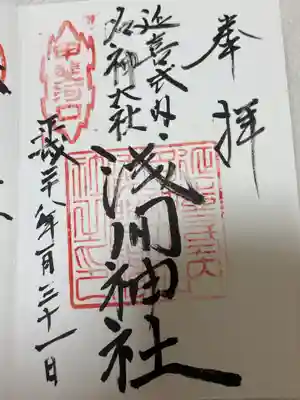 奉拝
延喜式内
名神大社
浅間神社
甲斐河口
平成二八年一月三十一日